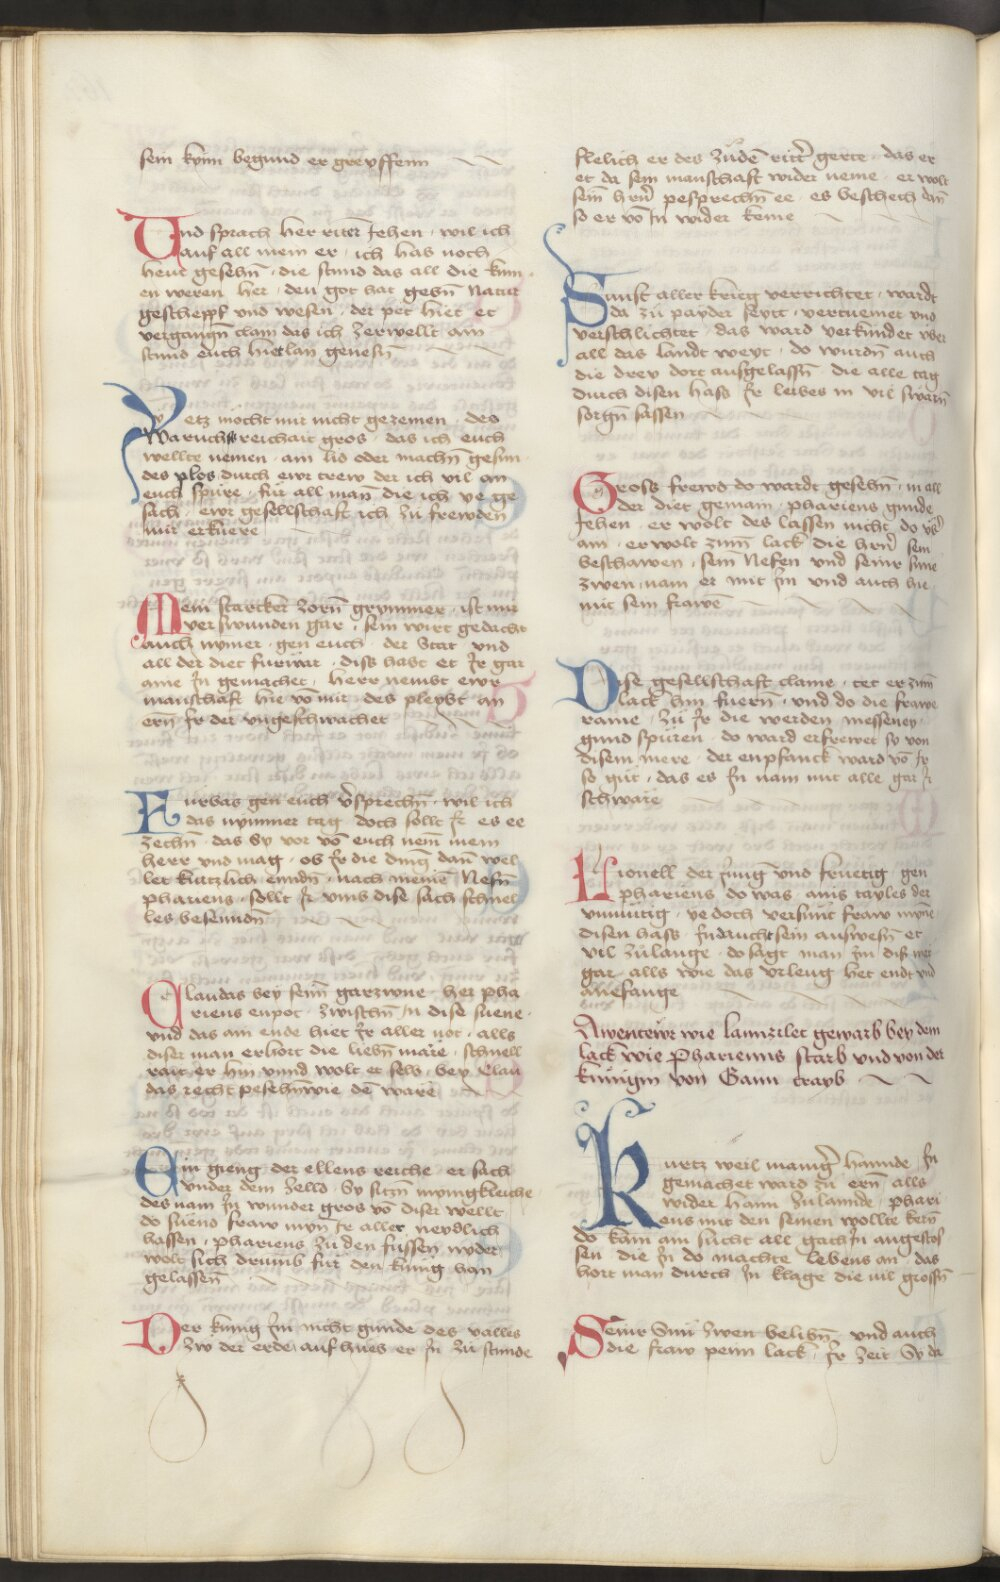 sein kynn begund er greyffenn
Und sprach her ritter Jehen · wil ich
auf all mein er · ich has noch
heut gesehn̄ · die stund das all die kun
en weren her · den got hat gebn̄ Natur
gescheppf vnd wesen · der pet hiet er
vergangn̄ clain das ich Zerwellt am
stund euch hietlan genesn̄
Yetz möcht mir nicht gezemen · des
Waruchs reichait gros · das ich euch
wellte nemen · am lid oder machn̄ gesun
des plos durch ewr trew der ich vil an
euch spüre · für all man die ich ye ge
sach · ewr gesellschaft ich zu frewden
mir erkuere
Mein starcker Zorn̄ grymmer · ist mir
verswunden gar · sein wirt gedacht
auch nymer · gen euch · der Stat · vnd
all der diet furwar · diss habt er Jr gar
ame Jn gemachet · herr nembt ewr
manschaft hie vō mir · des pleybt an
ern̄ Jr der vngeschwachet
Furbas gen euch v̓sprechn̄ · wil ich
das nymmer tag · doch sollt Jr es ee
Zechn̄ · das Sy vor vō euch nem̄ mein
herr vnd mag · ob Jr die ding dan̄ wel
let kurtzlich enndn̄ · nach meinē Nefn̄
phariens · sollt Jr vnns dise sach schnel
les besenndn̄
Claudas bey sein̄ garzwne · her pha
riens enpot · Zwischn̄ Jn dise suene ·
vnd das am ende hiet Jr aller not · alls
diser man erhort die liebn̄ märe · schnell
rait er hin vnnd wolt er selb · bey Clau
das recht pesehn̄ wie dē wäre
Ein gieng der ellens reiche · er sach
vnder dem Zelld · Sy sitzn̄ mynigkleiche
des nam Jn wunder gros vō diser wellt
do suend fraw myn̄ Jr aller neydlich
hassen · phariens Zu den fussen nyder
wolt sich drumb fur den kunig han
gelassen̄
Der kunig Jm nicht gunde des valles
Zw der erde auf hueb er Jn Zu stunde
flelich er des Zudē rittr̄ gerte · das er
er da sein manschaft wider neme · er wolt
sein̄ hrn̄ pesprechn̄ ee · es beschech dan̄
so er vō Jn wider keme
Sunst aller krieg verrichtet · wardt
da zu payder seytt · vertuemet vnd
verschlichtet · das ward verkundet vber
all das landt weyt · do wurdn̄ auch
die drey dort ausgelassn̄ die alle tag
durch disen hass Jr leibes in vil swarn̄
sorgn̄ sassen
Gross frewd do wardt gesehn̄ · in all
der diet gemain · phariens gunde
Jehen · er wolt des lassen nicht do
am · er wolt zum̄ lack die hrn̄ sein
beschawen · sein̄ Nefen vnd seinr sune
zwen nam er mit Jm vnd auch hie
mit sein frawē
Dise gesellschaft clame · tet er zum̄
lack hin fuern̄ · vnd do die frawe
rame · Zu Jr die werden messeney ·
gund spüren · do ward erfrewet sy von
disem mere · der enpfanck ward vō Jr
so gut · das es Jn nam mit alle gar Jr
schwäre
Lionell der Jung̓ vnd fruetig gen
phariens do was · ains tayles der
vnmutig · yedoch versunt fraw myne
disen hass · Jn daucht sein auswesn̄ er
vil Zulange · do sagt man Jm diss mer
gar · alls wie das vrleug het endt vnd
anefange
Awentewr wie lannzilet gewarb bey dem
lack wie Phariens starb vnd von der
kunigin von Gann trayb
Kurtz weil manig̓ hannde · Jn
gemachet ward zu ern̄ alls
wider haim Zulannde · phari
ens mit den seinen wollte kern̄
do kam am sucht all gach Jn angestos
sen die Jn do machte lebens an · das
hort man durch Jn klage die vil grossn̄
Seinr Sun Zwen belibn̄ · vnd auch
die fraw penn lack · Jr Zeit Sy da